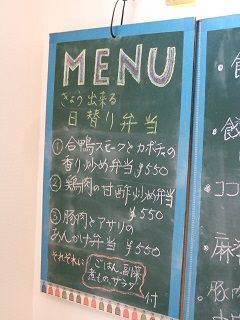 MENU
きょう出来る
日替り弁当
① 合鴨スモークとカボチャの
香り炒め弁当 ¥550
② 鶏肉の甘酢炒め弁当
¥550
③ 豚肉とアサリの
あんかけ弁当 ¥550
それぞれに
ごはん、副菜
煮もの、サラダ
付
・飲
・餃
ココ
麻婆